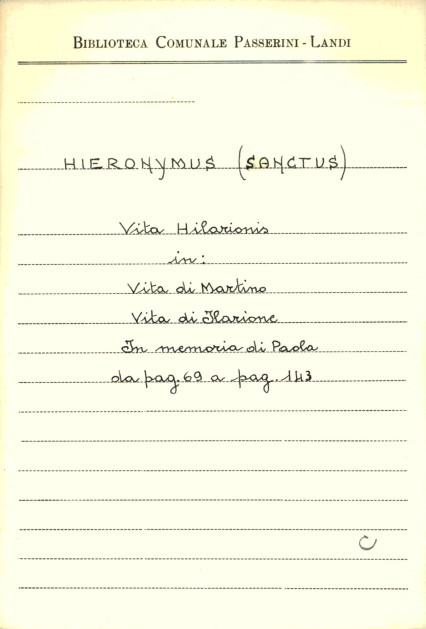 BIBLIOTECA COMUNALE PASSERINI - LANDI
HIERONYMUS (SANCTUS)
Vita Hilarionis
in:
Vita di Martino
Vita di Ilarione
In memoria di Paola
da pag. 69 a pag. 143
C